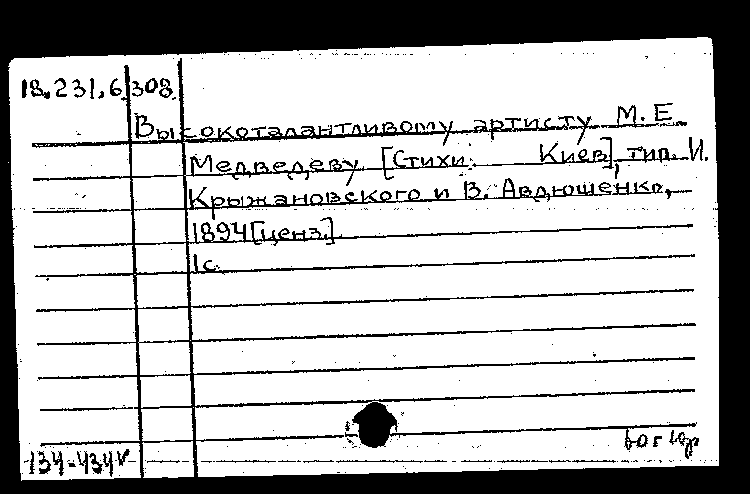 18.231.6.308.
Высокоталантливому артисту М. Е.
Медведеву. [Стихи. Киев], тип. И.
Крыжановского и В. Авдюшенко,
1894[ценз.].
1с.
134-434